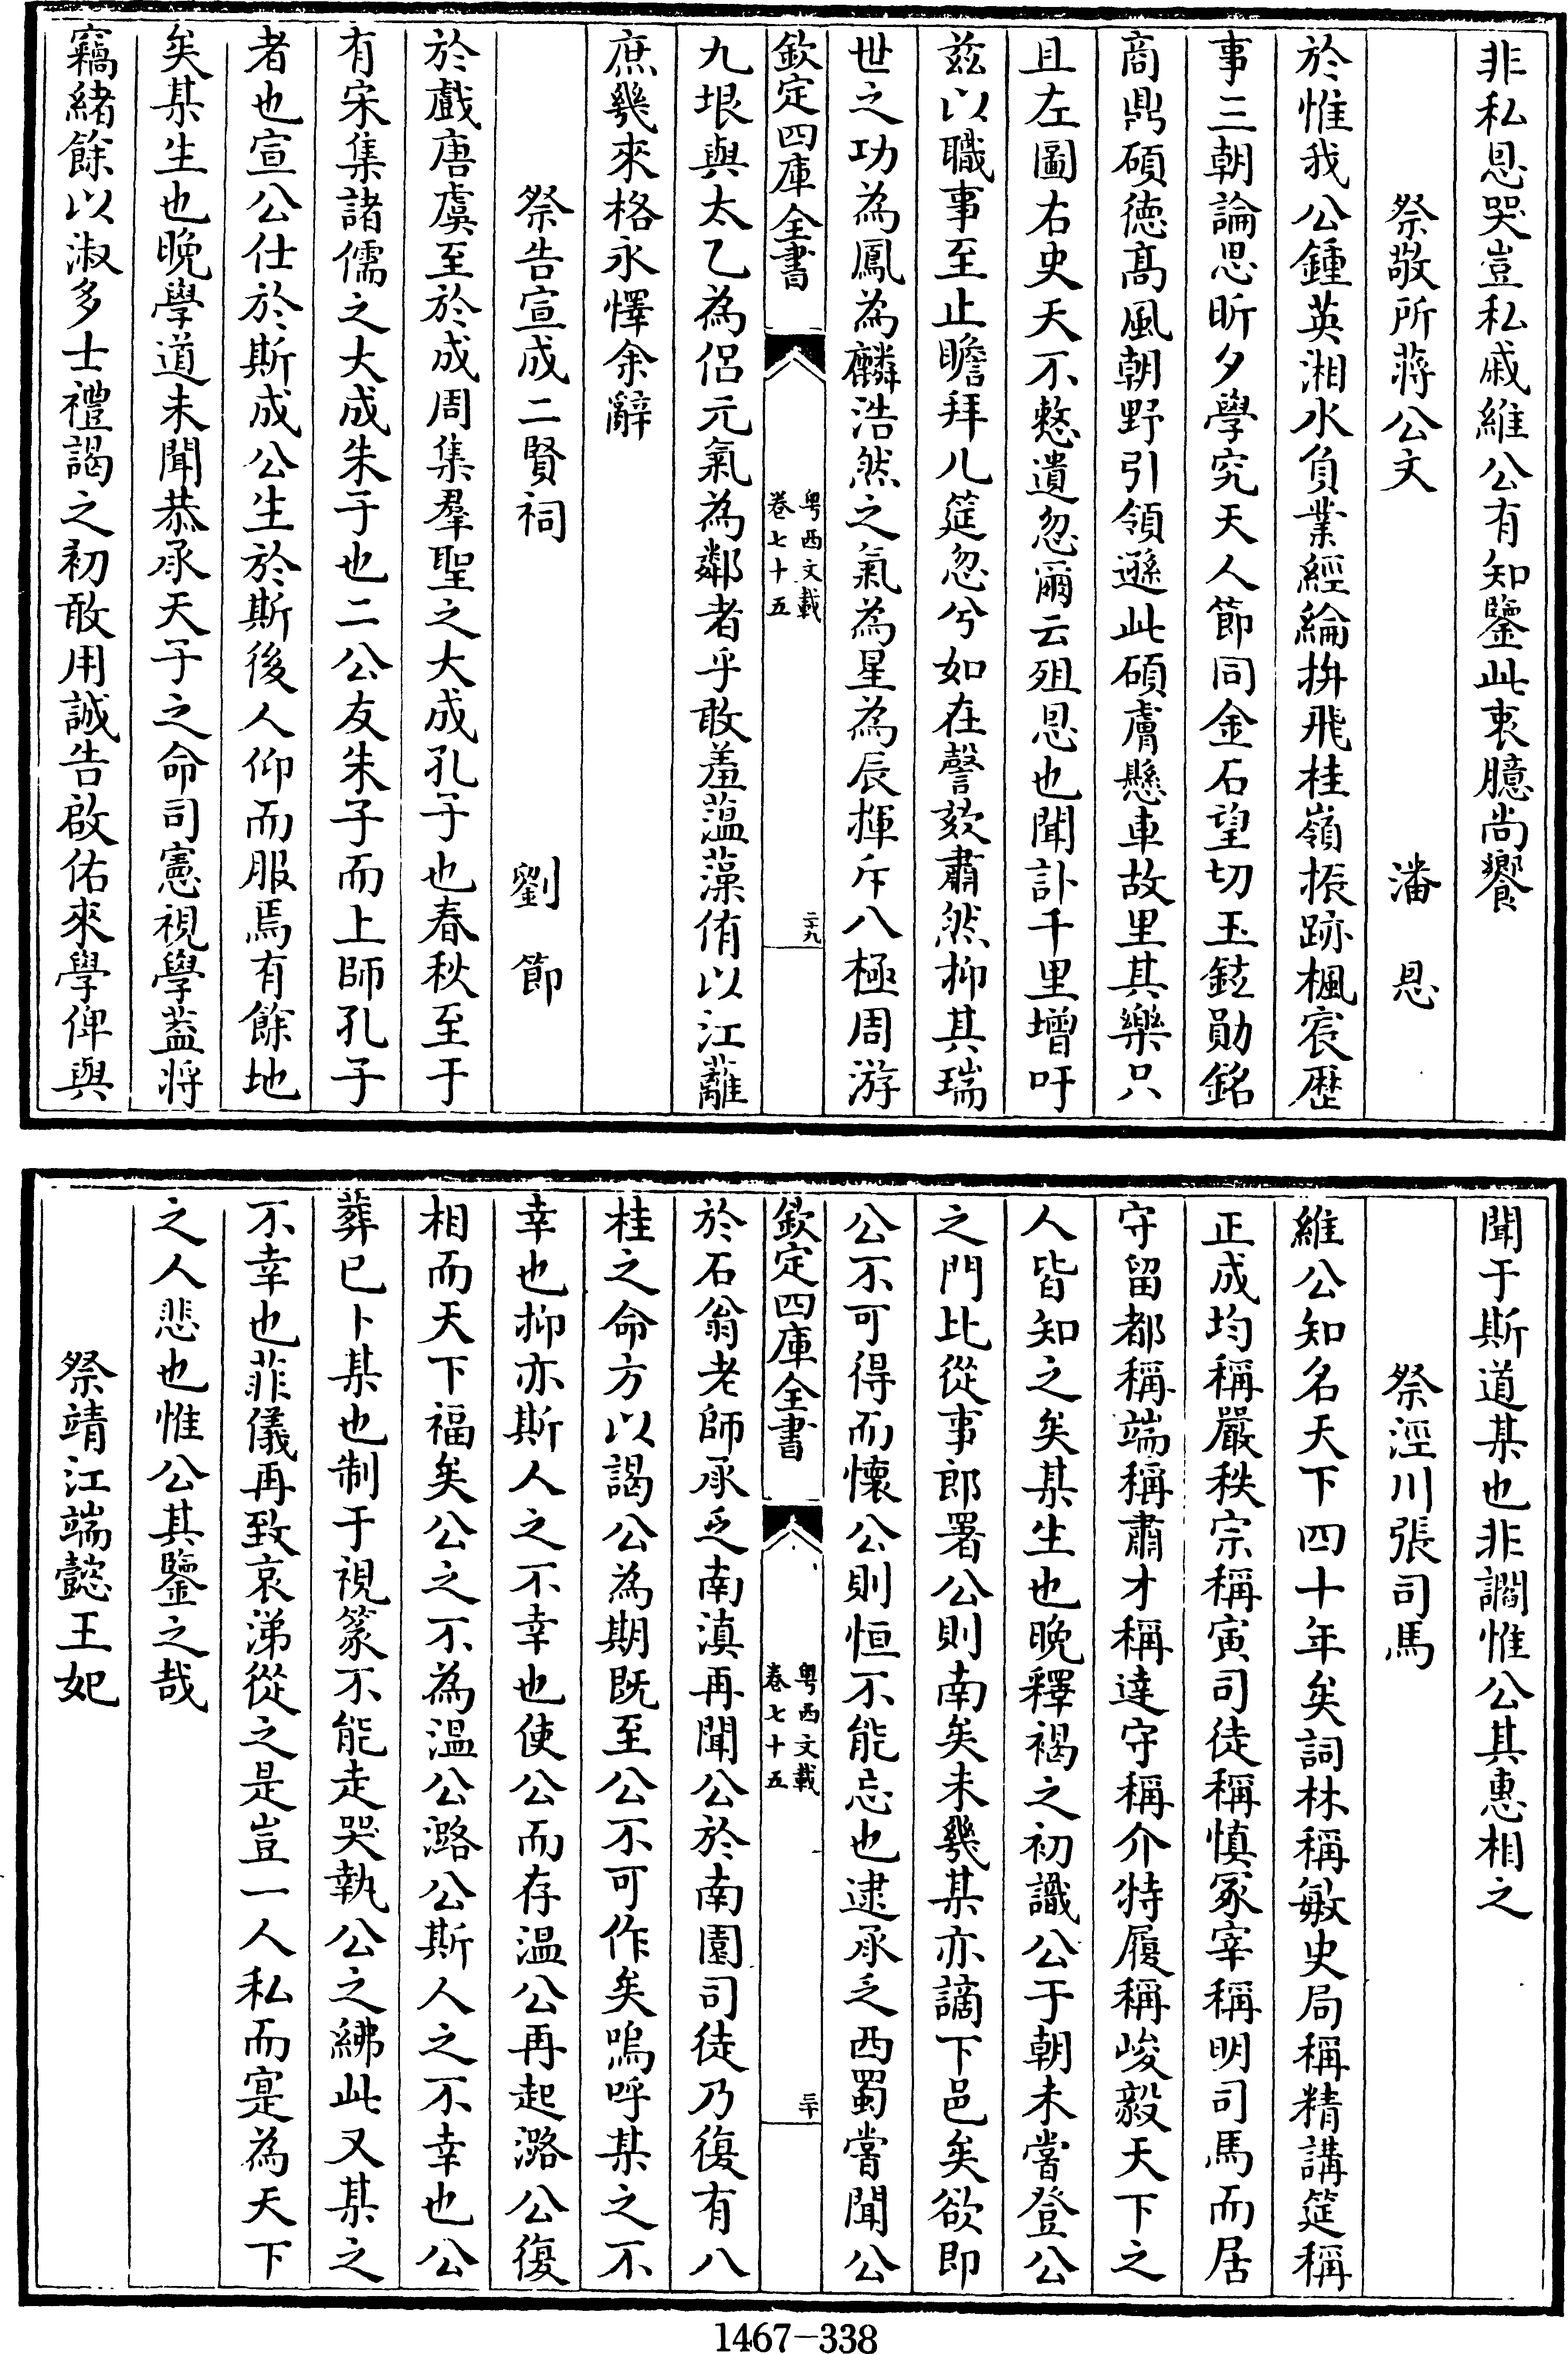 非私恩哭豈私戚維公有知鑒此衷臆尚饗
祭敬所蔣公文　潘恩
於惟我公鍾英湘水負業經綸拚飛桂嶺振跡楓宸歷
事三朝論思昕夕學究天人節同金石望切玉鉉勛銘
商鼎碩德高風朝野引領遜此碩膚懸車故里其樂只
且左圖右史天不憗遺忽爾云殂恩也聞訃千里增吁
茲以職事至止瞻拜几筵忽兮如在謦欬肅然抑其瑞
世之功為鳳為麟浩然之氣為星為辰揮斥八極周游
欽定四庫全書
粵西文載
卷七十五
二十九
九垠與太乙為侣元氣為鄰者乎敢羞薀藻侑以江蘺
庶幾來格永懌余辭
祭告宣成二賢祠　劉節
於戲唐虞至於成周集羣聖之大成孔子也春秋至于
有宋集諸儒之大成朱子也二公友朱子而上師孔子
者也宣公仕於斯成公生於斯後人仰而服焉有餘地
矣某生也晚學道未聞恭承天子之命司憲視學葢將
竊緒餘以淑多士禮謁之初敢用誠告啟佑來學俾與
聞于斯道某也非讇惟公其惠相之
祭涇川張司馬
維公知名天下四十年矣詞林稱敏史局稱精講筵稱
正成均稱嚴秩宗稱寅司徒稱慎冢宰稱明司馬而居
守留都稱端稱肅才稱達守稱介特履稱峻毅天下之
人皆知之矣某生也晚釋褐之初識公于朝未嘗登公
之門比從事郎署公則南矣未幾某亦謫下邑矣欲即
公不可得而懷公則恒不能忘也逮承乏西蜀嘗聞公
欽定四庫全書
粵西文載
卷七十五
三十
於石翁老師承乏南滇再聞公於南園司徒乃復有八
桂之命方以謁公為期既至公不可作矣嗚呼某之不
幸也抑亦斯人之不幸也使公而存溫公再起潞公復
相而天下福矣公之不為溫公潞公斯人之不幸也公
葬已卜某也制于視篆不能走哭執公之紼此又某之
不幸也菲儀再致哀涕從之是豈一人私而寔為天下
之人悲也惟公其鑒之哉
祭靖江端懿王妃
1467-338